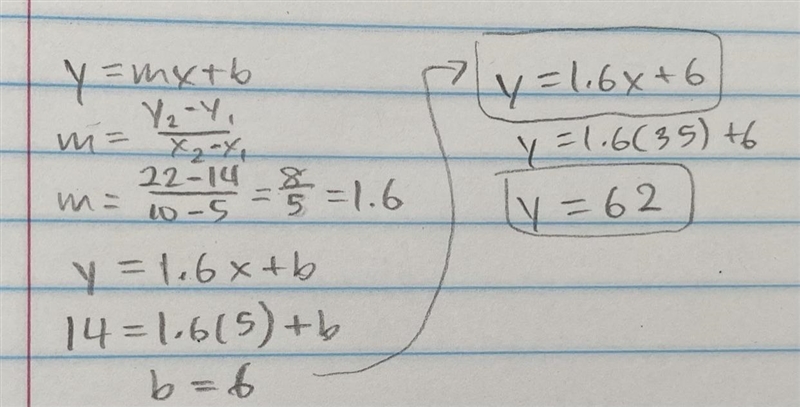 y = mx + b
m = (y₂ - y₁)/(x₂ - x₁)
m = (22 - 14)/(10 - 5) = 8/5 = 1.6
y = 1.6x + b
14 = 1.6(5) + b
b = 6
y = 1.6x + 6
y = 1.6(35) + 6
y = 62